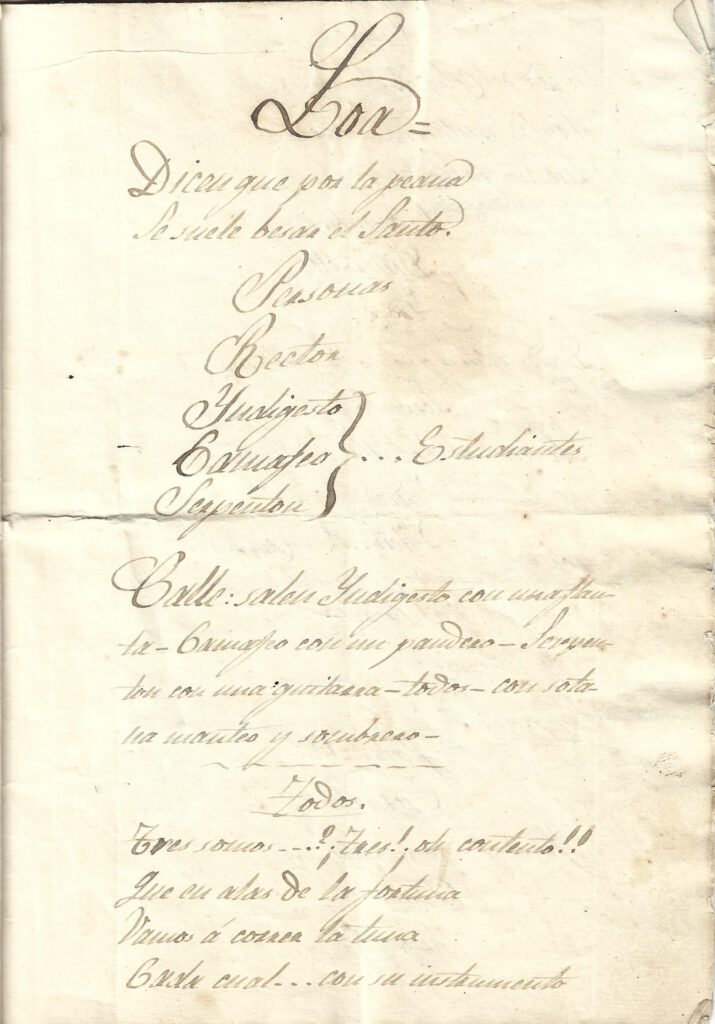 Loa=
Dicen que por la peana
Se suele besar el Santo.
Personas
Rector
Yndigesto
Camafeo ... Estudiantes
Serpenton
Calle: salen Yndigesto con una flau-
ta - Camafeo con un pandero - Serpen-
ton con una guitarra - todos - con sota-
na manteo y sombrero -
Todos.
Tres somos ---? ¡Tres! oh contento!!
Que en alas de la fortuna
Vamos á correr la tuna
Cada cual... con su instrumento